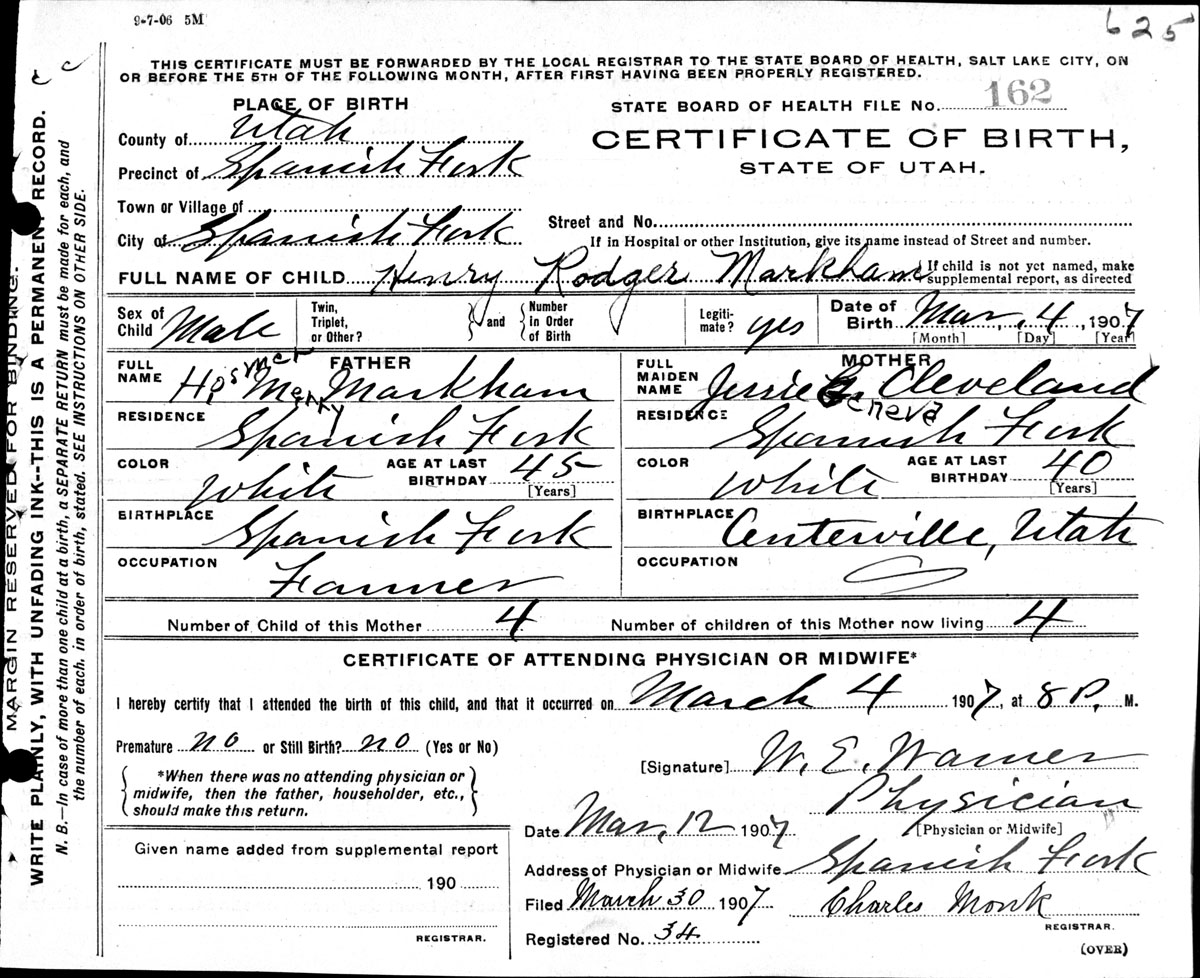 9-7-06 5M
625
THIS CERTIFICATE MUST BE FORWARDED BY THE LOCAL REGISTRAR TO THE STATE BOARD OF HEALTH, SALT LAKE CITY, ON
OR BEFORE THE 5TH OF THE FOLLOWING MONTH, AFTER FIRST HAVING BEEN PROPERLY REGISTERED.
PLACE OF BIRTH
STATE BOARD OF HEALTH FILE No. 162
County of Utah
CERTIFICATE OF BIRTH,
STATE OF UTAH.
Precinct of Spanish Fork
Town or Village of
Street and No.
City of Spanish Fork
If in Hospital or other Institution, give its name instead of Street and number.
FULL NAME OF CHILD Henry Rodger Markham
If child is not yet named, make
supplemental report, as directed
Sex of Child Male
Twin, Triplet, or Other?
and
Number In Order of Birth
Legiti-mate? yes
Date of Birth Mar. 4, 1907
[Month] [Day] [Year]
FATHER
FULL NAME Hosmer Merry Markham
RESIDENCE Spanish Fork
COLOR White
AGE AT LAST BIRTHDAY 45
[Years]
BIRTHPLACE Spanish Fork
OCCUPATION Farmer
MOTHER
FULL MAIDEN NAME Jessie Geneva Cleveland
RESIDENCE Spanish Fork
COLOR White
AGE AT LAST BIRTHDAY 40
[Years]
BIRTHPLACE Centerville, Utah
OCCUPATION
Number of Child of this Mother 4
Number of children of this Mother now living 4
CERTIFICATE OF ATTENDING PHYSICIAN OR MIDWIFE*
I hereby certify that I attended the birth of this child, and that it occurred on March 4 1907, at 8 P. M.
Premature no or Still Birth? no (Yes or No)
*When there was no attending physician or
midwife, then the father, householder, etc.,
should make this return.
[Signature] W. E. Warner
Physician
[Physician or Midwife]
Date Mar. 12 1907
Address of Physician or Midwife Spanish Fork
Filed March 30 1907
Charles Monk
REGISTRAR.
Registered No. 34
(OVER)
Given name added from supplemental report
190
REGISTRAR.
MARGIN RESERVED FOR BINDING.
WRITE PLAINLY, WITH UNFADING INK--THIS IS A PERMANENT RECORD.
N. B.—In case of more than one child at a birth, a SEPARATE RETURN must be made for each, and
the number of each, in order of birth, stated. SEE INSTRUCTIONS ON OTHER SIDE.